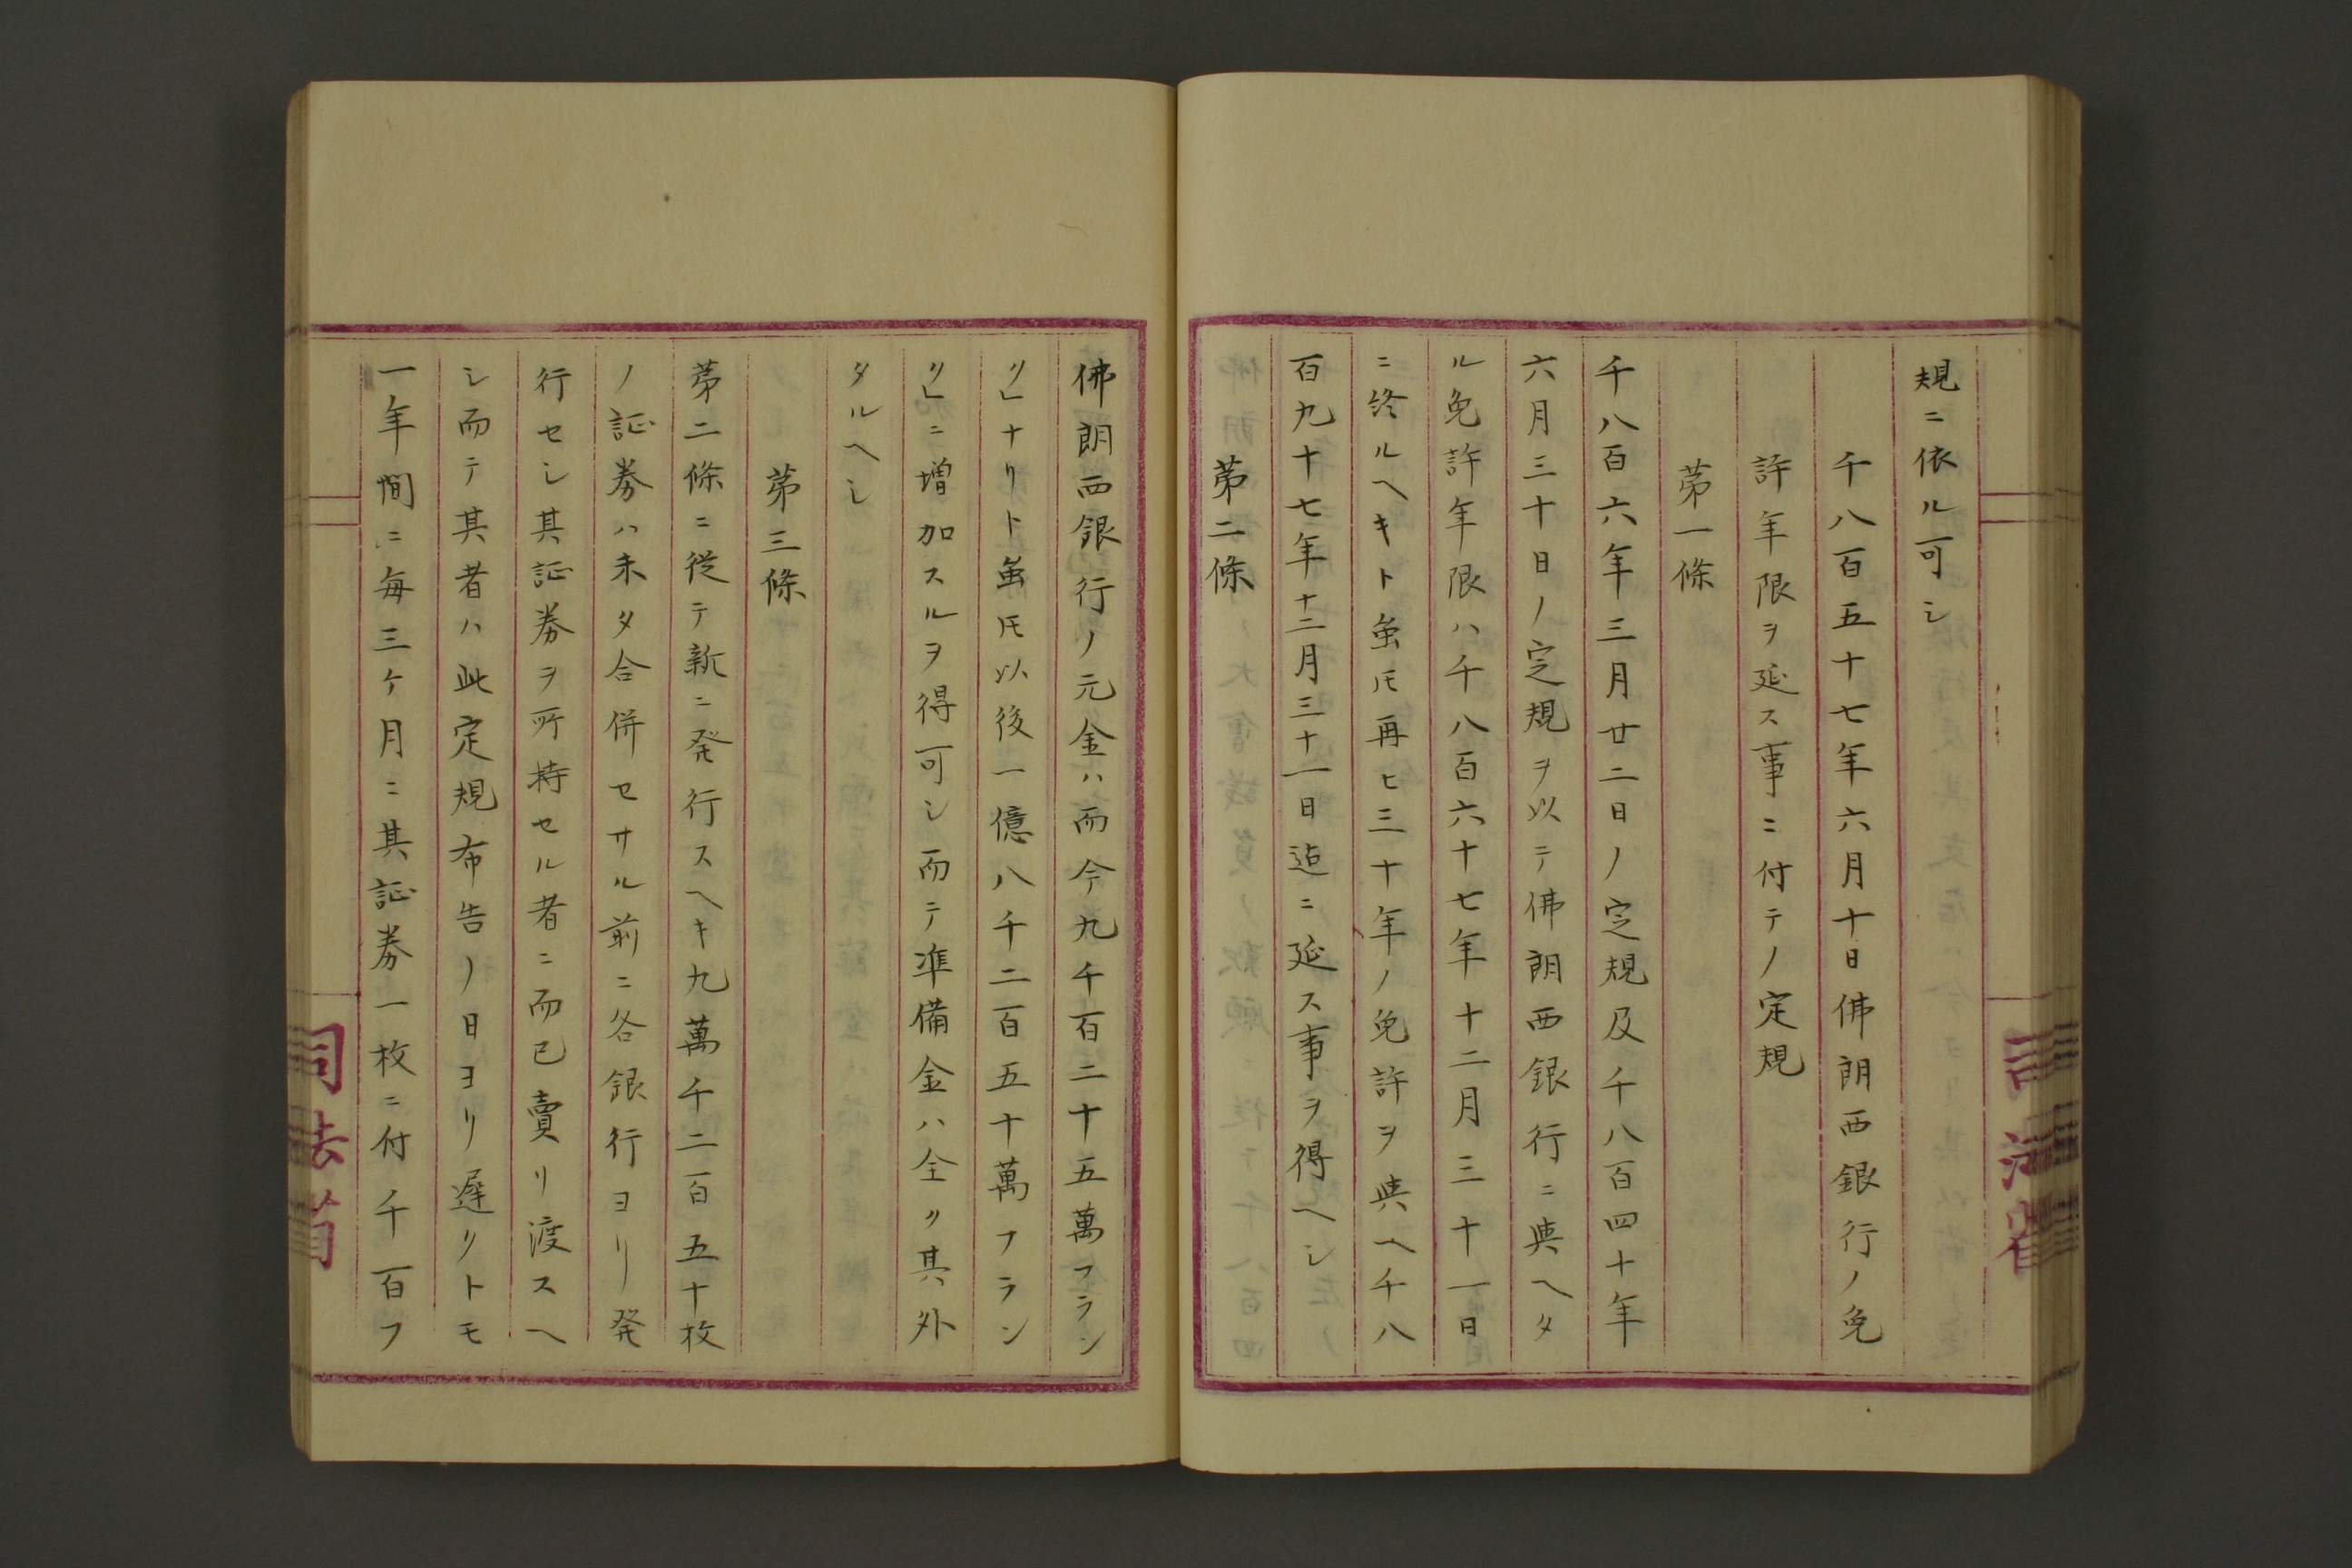 規ニ依ル可シ
千八百五十七年六月十日佛朗西銀行ノ免
許年限ヲ延ス事ニ付テノ定規
第一條
千八百六年三月廿二日ノ定規及千八百四十年
六月三十日ノ定規ヲ以テ佛朗西銀行ニ與ヘタ
ル免許年限ハ千八百六十七年十二月三十一日
ニ終ルヘキト虽𪜈再ヒ三十年ノ免許ヲ與ヘ千八
百九十七年十二月三十一日迠ニ延ス事ヲ得ヘシ
第二條
佛朗西銀行ノ元金ハ而今九千百二十五萬フラン
ク」ナリト虽𪜈以後一億八千二百五十萬フラン
ク」ニ増加スルヲ得可シ而テ準備金ハ全ク其外
タルヘシ
第三條
第二條ニ従テ新ニ発行スヘキ九萬千二百五十枚
ノ証券ハ未タ合併セサル前ニ各銀行ヨリ発
行セシ其証券ヲ所持セル者ニ而已賣リ渡スヘ
シ而テ其者ハ此定規布告ノ日ヨリ遅クトモ
一年間ニ毎三ケ月ニ其証券一枚ニ付千百フ
司法省